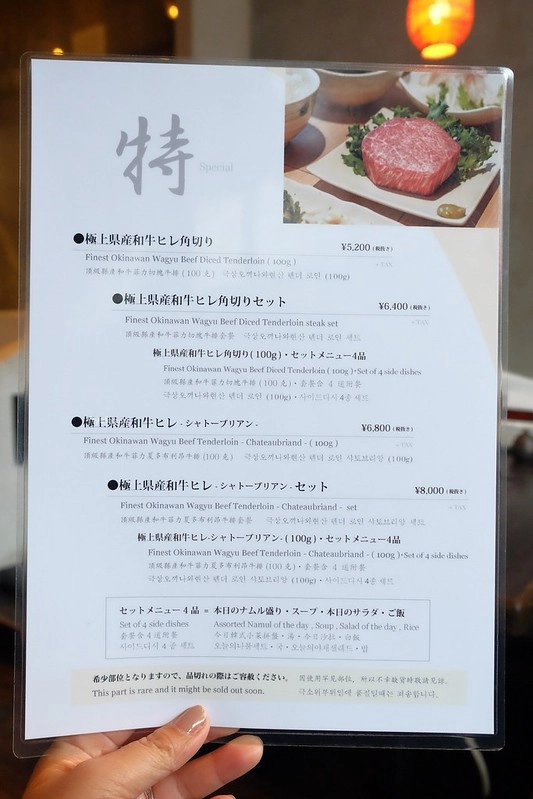 特
Special
●極上県産和牛ヒレ角切り ¥5,200 (税抜き)
Finest Okinawan Wagyu Beef Diced Tenderloin ( 100g ) + TAX
頂級縣産和牛菲力切塊牛排 (100 克) 극상오끼나와현산 텐더 로인 (100g)
●極上県産和牛ヒレ角切りセット ¥6,400 (税抜き)
Finest Okinawan Wagyu Beef Diced Tenderloin steak set + TAX
頂級縣産和牛菲力切塊牛排套餐 극상오끼나와현산 텐더 로인 세트
極上県産和牛ヒレ角切り(100g)・セットメニュー4品
Finest Okinawan Wagyu Beef Diced Tenderloin ( 100g )・Set of 4 side dishes
頂級縣産和牛菲力切塊牛排 (100 克)・套餐含 4 道附餐
극상오끼나와현산 텐더 로인 (100g)・사이드디시 4종 세트
●極上県産和牛ヒレ - シャトーブリアン - ¥6,800 (税抜き)
Finest Okinawan Wagyu Beef Tenderloin - Chateaubriand - ( 100g ) + TAX
頂級縣産和牛菲力夏多布利昂牛排 (100 克) 극상오끼나와현산 텐더 로인 샤토브리앙 (100g)
●極上県産和牛ヒレ - シャトーブリアン - セット ¥8,000 (税抜き)
Finest Okinawan Wagyu Beef Tenderloin - Chateaubriand - set + TAX
頂級縣産和牛菲力夏多布利昂牛排套餐 극상오끼나와현산 텐더 로인 샤토브리앙 세트
極上県産和牛ヒレ-シャトーブリアン- (100g)・セットメニュー4品
Finest Okinawan Wagyu Beef Tenderloin - Chateaubriand - ( 100g )・Set of 4 side dishes
頂級縣産和牛菲力夏多布利昂牛排 (100 克)・套餐含 4 道附餐
극상오끼나와현산 텐더 로인 샤토브리앙 (100g)・사이드디시 4종 세트
セットメニュー 4 品 = 本日のナムル盛り・スープ・本日のサラダ・ご飯
Set of 4 side dishes Assorted Namul of the day , Soup , Salad of the day , Rice
套餐含 4 道附餐 今日韓式小菜拼盤・湯・今日沙拉・白飯
사이드디시 4 종 세트 오늘의나물세트・국・오늘의야채샐러드・밥
希少部位となりますので、品切れの際はご容赦ください。
This part is rare and it might be sold out soon.
因使用罕見部位，所以若幸缺貨時敬請見諒。
극소위부위임에 품절일때는 죄송합니다.